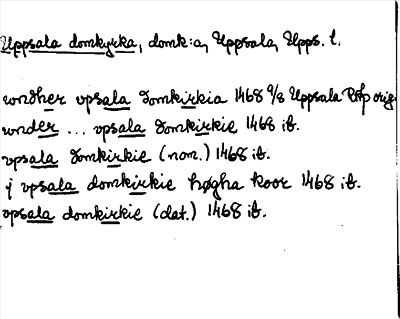 Uppsala domkyrka, domk:a, Uppsala, Upps. l.
wndher vpsala domkirkia 1468 9/8 Uppsala Påp orig.
wnder ... vpsala domkirkie 1468 ib.
vpsala domkirkie (nom.) 1468 ib.
j vpsala domkirkie høgha koor 1468 ib.
vpsala domkirkie (dat.) 1468 ib.